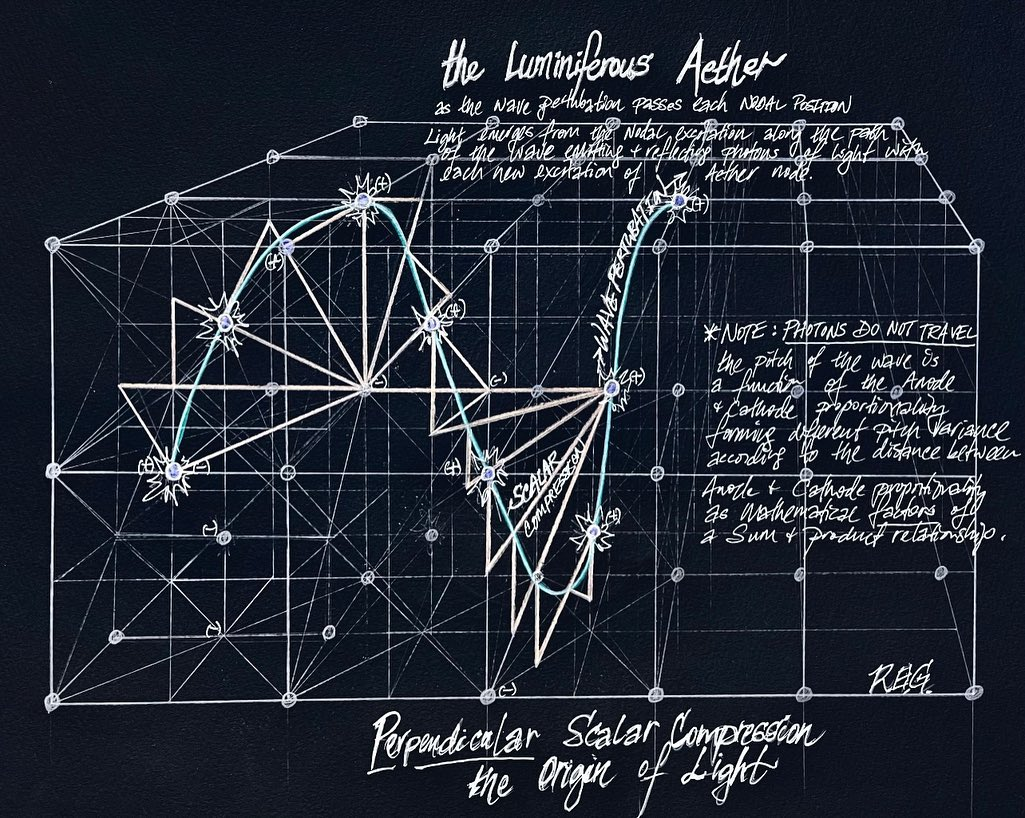 the Luminiferous Aether
as the wave perturbation passes each NODAL POSITION
Light emerges from the Nodal excitation along the path
of the wave emitting + reflecting photons of light with
each new excitation of Aether node.
WAVE PERTURBATION
(+)
(+)
(+)
(-)
(+)
(+)
(-)
(-)
(+)
(+) (-)
(+)
SCALAR
COMPRESSION
(+)
(-)
(-)
(-)
*NOTE: PHOTONS DO NOT TRAVEL
the pitch of the wave is
a function of the Anode
+ Cathode proportionality
forming different pitch variance
according to the distance between
Anode + Cathode proportionality
as Mathematical factors of
a Sum + product relationship.
R.E.G.
Perpendicular Scalar Compression
the Origin of Light